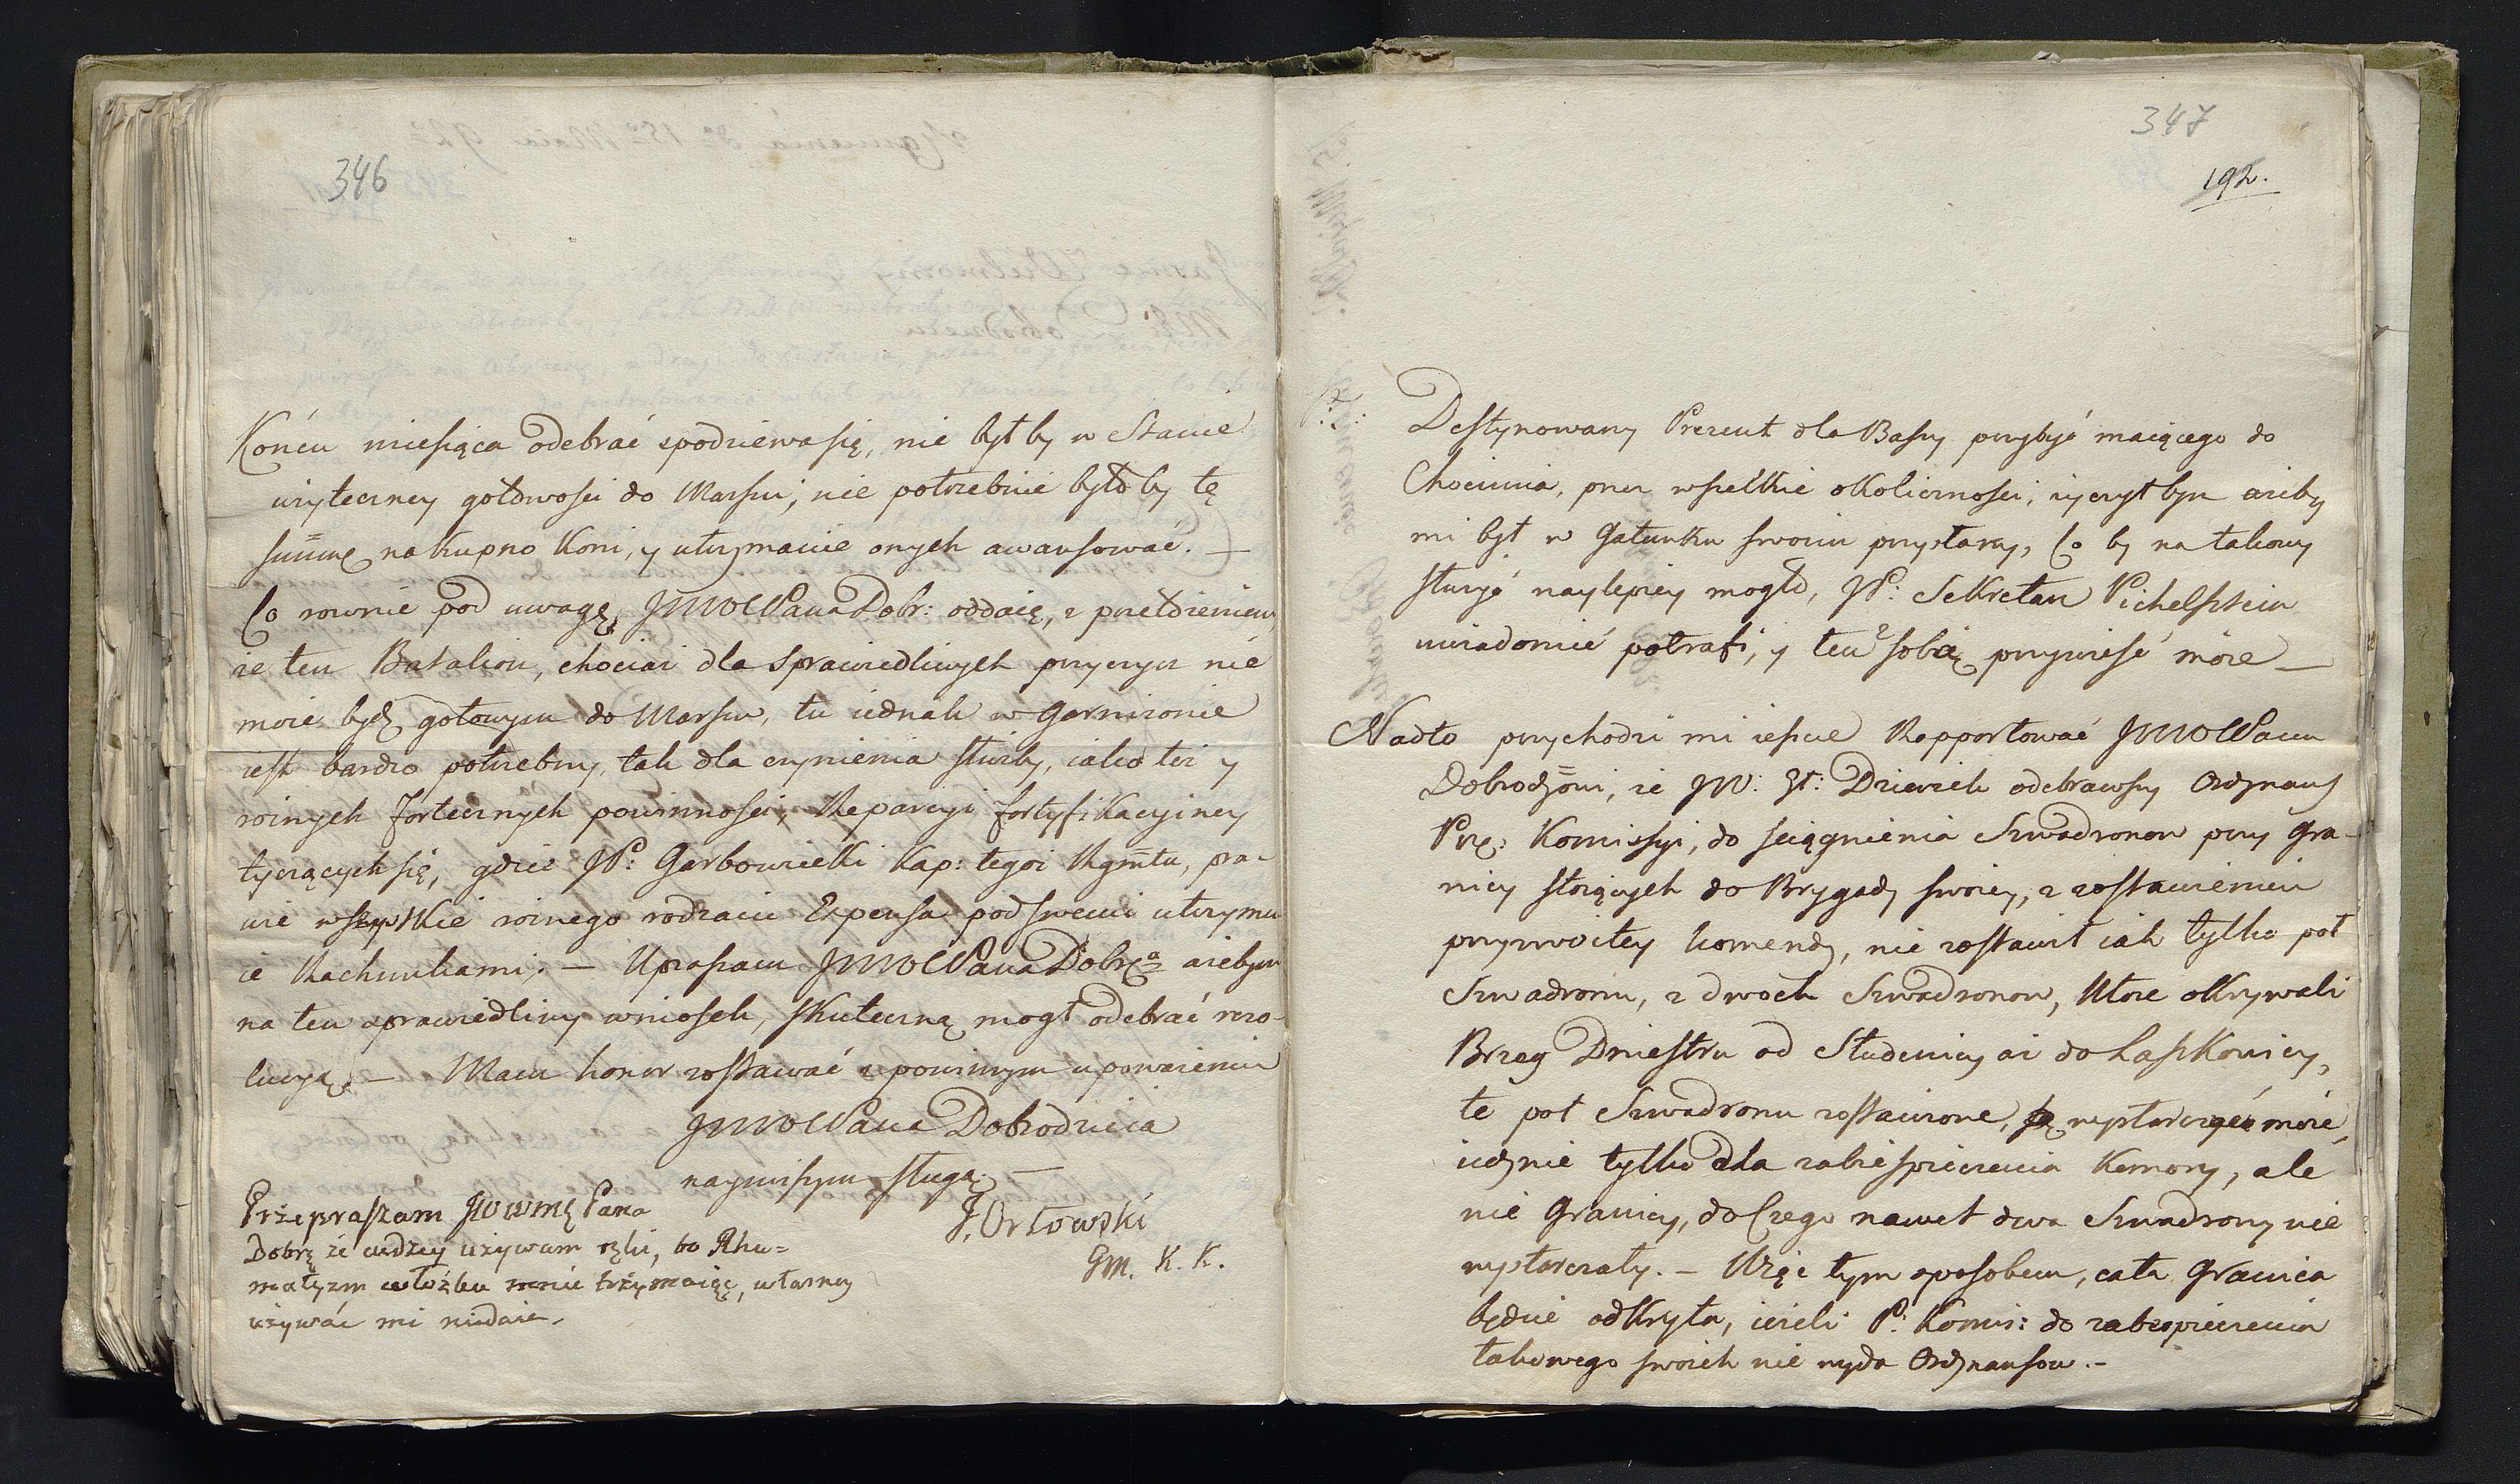 346
Końcu miesiąca odebrać spodziewa się, nie był by w Stanie
użyteczney gotowosci do Marszu, nie potrzebnie było by tę
summę na kupno Koni, y utrzymanie onych awansować. —
Co rownie pod uwagę JMWWPana Dobr: oddaię, z przełożeniem,
że ten Batalion, chociaż dla sprawiedliwych przyczyn nie
może bydź gotowym do Marszu, tu iednak w Garnizonie
iest bardzo potrzebny, tak dla czynienia służby, iako też y
rożnych fortecznych powinnosci, Reparacyi fortyfikacyiney
tyczących się, gdzie JP: Garbowiecki Kap: tegoż Rgmtu, pra-
wie wszystkie rożnego rodzaiu Expensa pod swemi utrzymu
ie Rachunkami. — Upraszam JMWWPana Dobrza ażebym
na ten sprawiedliwy wniosek, skuteczną mogł odebrać rezo-
lucyą. — Mam honor zostawać z powinnym uszanowaniem
JMWWPana Dobrodzieia
nayniższym sługą —
J. Orłowski
GM. K. K.
Przepraszam JWWMę Pana
Dobrę że cudzey używam ręki, bo Rhu=
matyzm w łóżku mnie trzymaiąc, własney
używać mi niedaie.
347
192.
P:S:
Destynowany Prezent dla Baszy przybyć maiącego do
Chocimia, przez wszelkie okolicznosci, życzył bym ażeby
mi był w Gatunku swoim przysłany, Co by na takowy
służyć naylepiey mogło, JP: Sekretarz Pichelsztein
uwiadomić potrafi, y ten z sobą przywieść może —
Nadto przychodzi mi ieszcze Rapportować JMWWPanu
Dobrodzowi, że JW: Gł: Dzierzek odebrawszy Ordynans
Prz: Komissyi, do sciągnienia Szwadronow przy Gra-
nicy stoiących do Brygady swoiey, z zostawieniem
przyzwoitey komendy, nie zostawił iak tylko poł
Szwadronu, z dwoch Szwadronow, Ktore okrywali
Brzeg Dniestru od Studenicy aż do Laszkowicy,
te poł Szwadronu zostawione, wystarczyć może
iedynie tylko dla zabespieczenia Komory, ale
nie Granicy, do Czego nawet dwa Szwadrony nie
wystarczały. — Więc tym sposobem, cała Granica
będzie odkryta, ieżeli P: Komis: do zabespieczenia
takowego swoich nie wyda Ordynansow. -